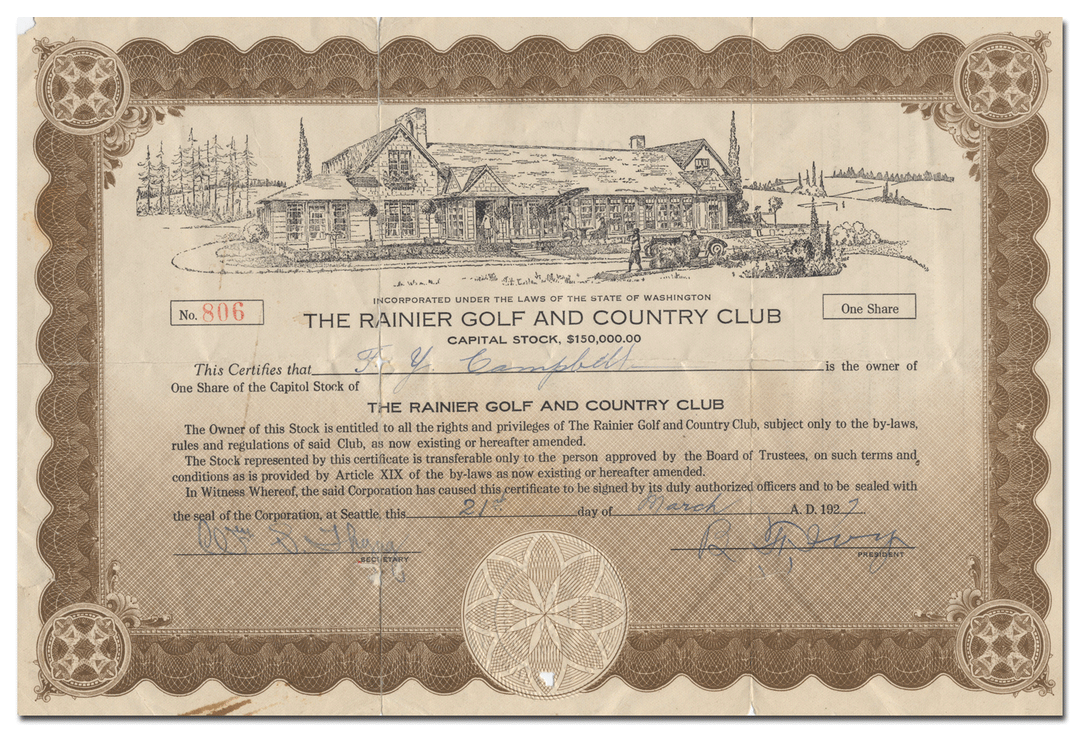 INCORPORATED UNDER THE LAWS OF THE STATE OF WASHINGTON
No. 806
THE RAINIER GOLF AND COUNTRY CLUB
One Share
CAPITAL STOCK, $150,000.00
This Certifies that F. Y. Campbell is the owner of
One Share of the Capitol Stock of
THE RAINIER GOLF AND COUNTRY CLUB
The Owner of this Stock is entitled to all the rights and privileges of The Rainier Golf and Country Club, subject only to the by-laws,
rules and regulations of said Club, as now existing or hereafter amended.
The Stock represented by this certificate is transferable only to the person approved by the Board of Trustees, on such terms and
conditions as is provided by Article XIX of the by-laws as now existing or hereafter amended.
In Witness Whereof, the said Corporation has caused this certificate to be signed by its duly authorized officers and to be sealed with
the seal of the Corporation, at Seattle, this 21st day of March A. D. 1927.
SECRETARY
PRESIDENT